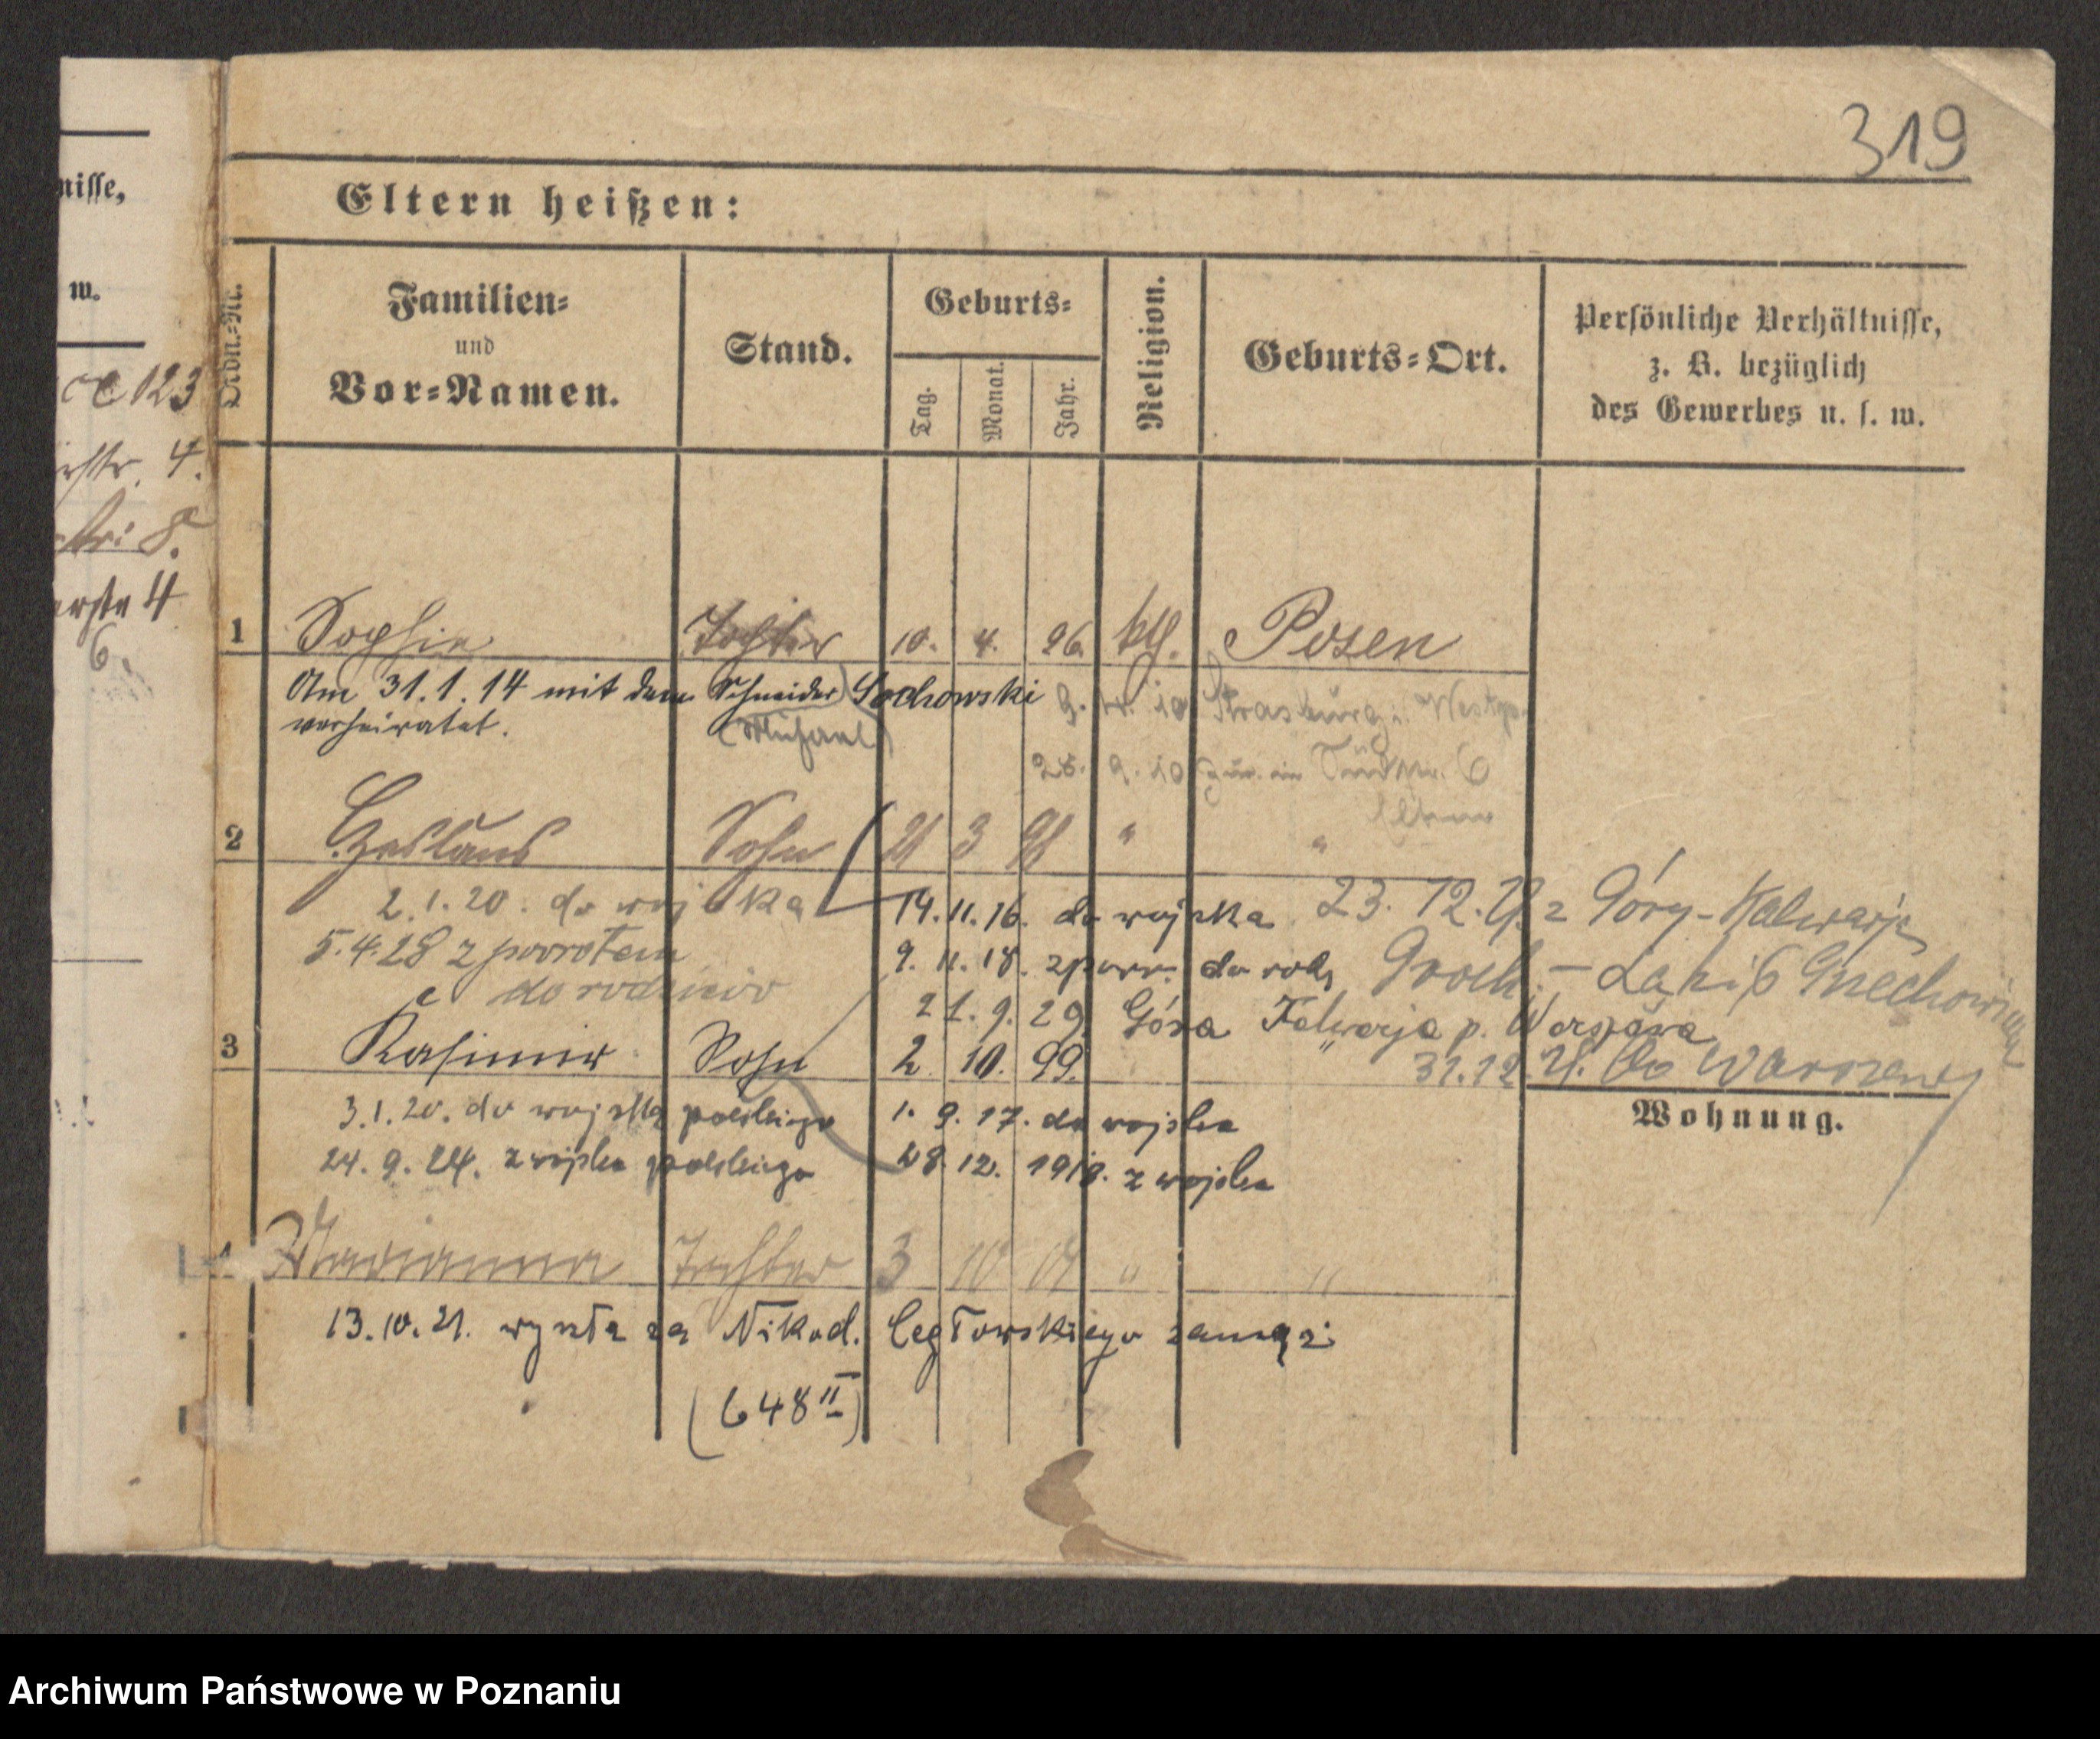 319
nisse,
w.
123
str. 4.
8.
4
6.
Eltern heißen:
Ordn.-Nr.
Familien-
und
Vor-Namen.
Stand.
Geburts-
Tag.
Monat.
Jahr.
Religion.
Geburts-Ort.
Persönliche Verhältnisse,
z. B. bezüglich
des Gewerbes u. s. w.
1 Sophie Tochter 10. 4. 96. kth. Posen
Am 31.1.14 mit dem Schneider Sochowski
verheiratet. (Michael)
9. 10 Strasburg i. Westpr.
28. 9. 10 6
Eltern
2 Czeslaus Sohn 21 3 98 " "
2.1.20. do wojska 14.11.16. do wojska 23.12.29 z Góry-Kalwarja
5.4.28 z powrotem 9.11.18. z pow. do rodz Groch. - Łąki 6
do rodziców 21.9.29. Góra Kalwarja p. Warszawa
3 Kasimir Sohn 2. 10. 99. " 31.12.29. do Warszawy
Wohnung.
3.1.20. do wojska polskiego 1. 9. 17. do wojska
24. 9. 24. z wojska polskiego 28. 12. 1918. z wojska
4 Marianna Tochter 3 10 01 " "
13.10.21. wyszła za Nikod. Cegłowskiego zamąż
(648 II)
Archiwum Państwowe w Poznaniu